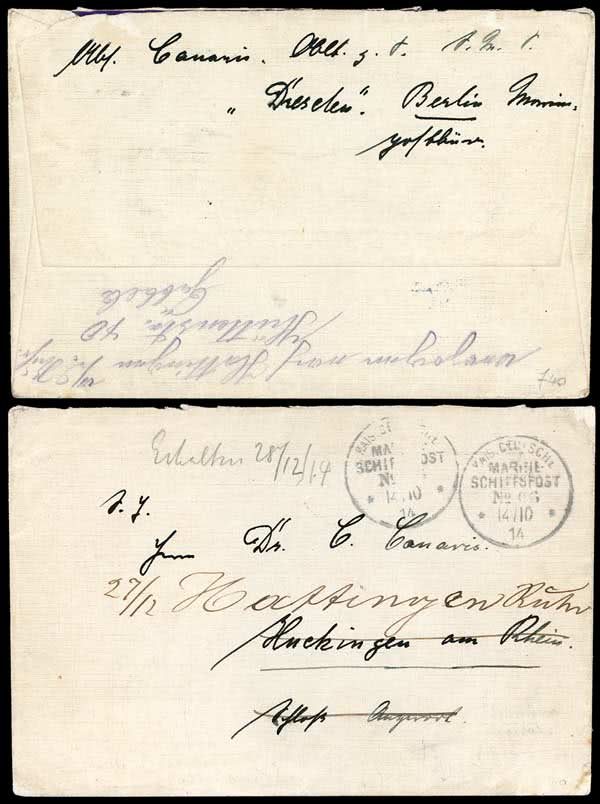 Abs. Canaris. Oblt. z. S. S. M. S.
„Dresden". Berlin Marine-
postbüro.
verzogen nach Hattingen
Hüttenstr. 40
740
Erhalten 28/12/14
KAIS. DEUTSCHE
MARINE-
SCHIFFSPOST
No
* 14/10 *
14
KAIS. DEUTSCHE
MARINE-
SCHIFFSPOST
No 06
* 14/10 *
14
S. H.
Herrn Dr. C. Canaris.
27/12 Hattingen Ruhr
Huckingen am Rhein.
Schloß Angerort.